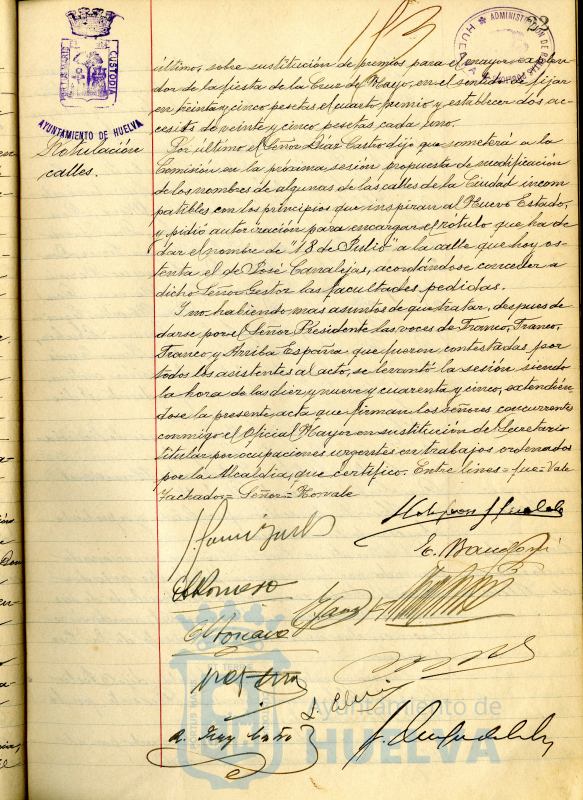 AYUNTAMIENTO DE HUELVA
CUSTODIA
ADMINISTRADOR DE
HUELVA
Rotulación
calles.
último, sobre sustitución de premios para el mayor
dor de la fiesta de la Cruz de Mayo, en el sentido de fijar
en treinta y cinco pesetas el cuarto premio y establecer dos ac-
cesits de veinte y cinco pesetas cada uno.
Por último el Señor Díaz Castro dijo que someterá a la
Comisión en la próxima sesión propuesta de modificación
de los nombres de algunas de las calles de la Ciudad incom
patibles con los principios que inspiran al Nuevo Estado,
y pidió autorización para encargar el rótulo que ha de
dar el nombre de "18 de Julio" a la calle que hoy os-
tenta el de José Canalejas, acordándose conceder a
dicho Señor Gestor las facultades pedidas.
Y no habiendo mas asuntos de que tratar, despues de
darse por el Señor Presidente las voces de Franco, Franco,
Franco y Arriba España que fueron contestadas por
todos los asistentes al acto, se levantó la sesión siendo
la hora de las diez y nueve y cuarenta y cinco, extendién-
dose la presente acta que firman los señores concurrentes
conmigo el Oficial Mayor en sustitución de Secretario
titular por ocupaciones urgentes en trabajos ordenados
por la Alcaldía, que certifico. Entre lineas = fue = Vale
Tachado = Señor = No vale
Ayuntamiento de
HUELVA